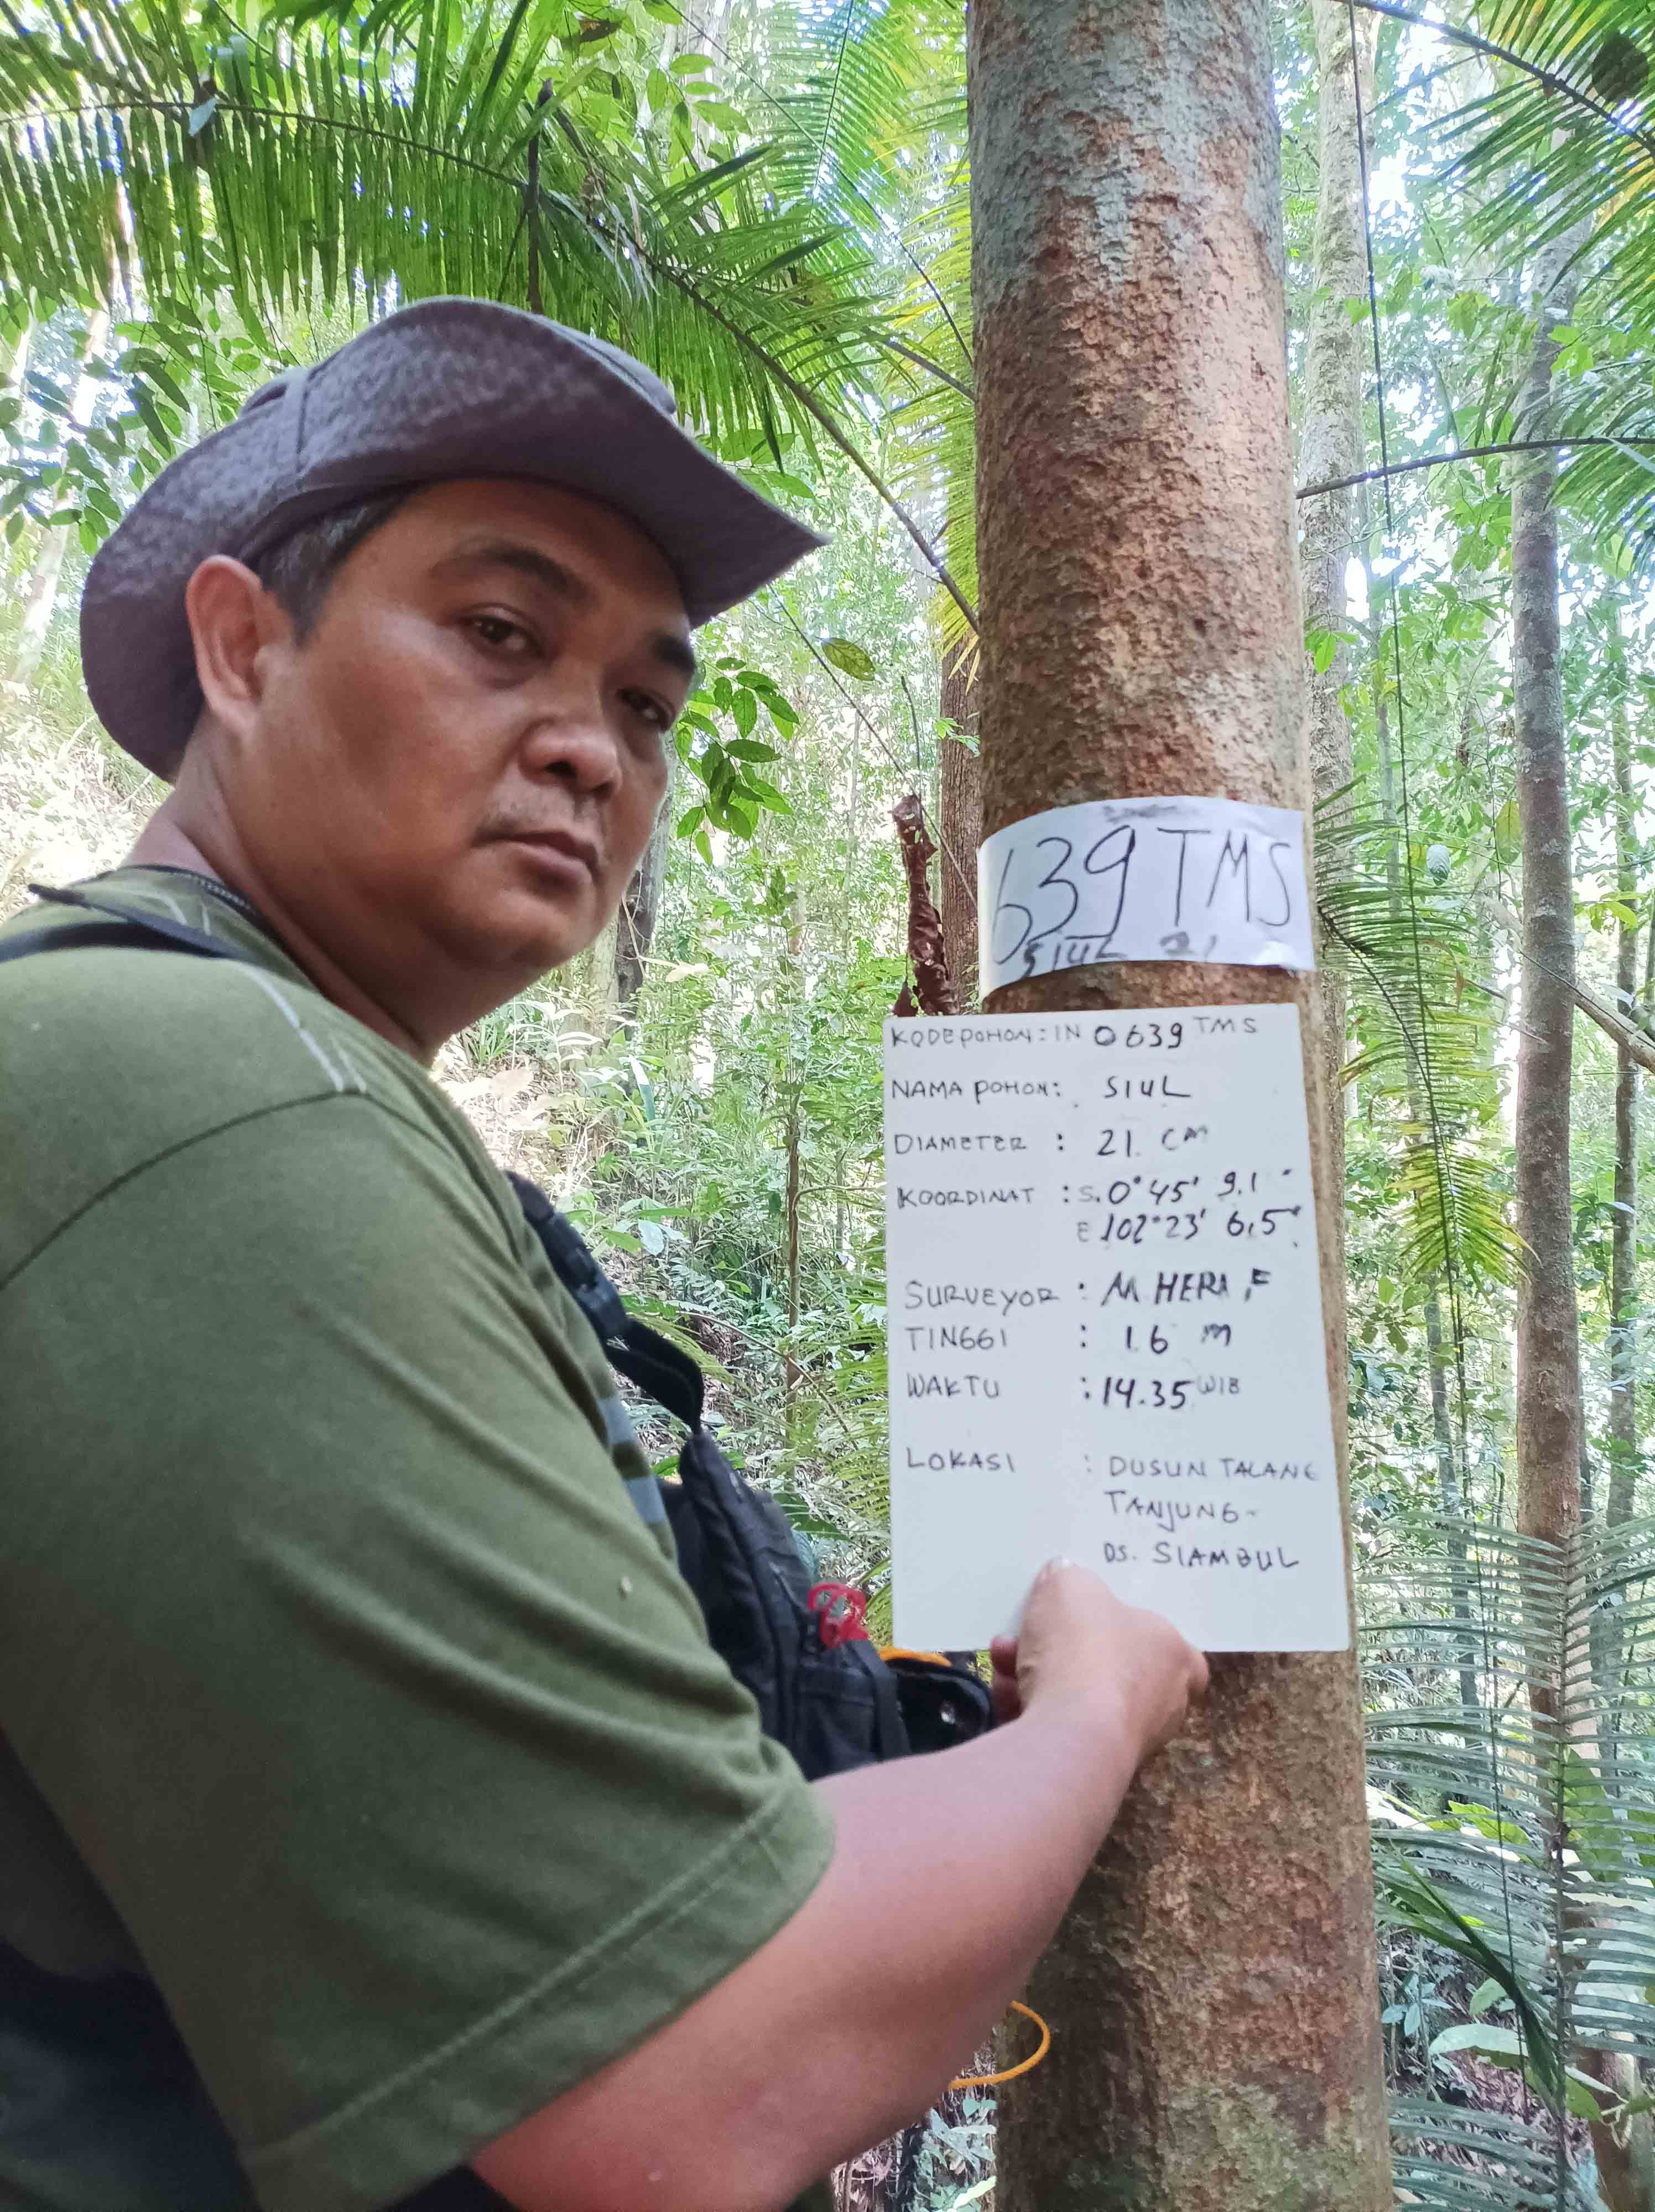 639 TMS
SIUL 21
KODE POHON : IN 0639 TMS
NAMA POHON : SIUL
DIAMETER : 21. CM
KOORDINAT : S. 0° 45' 9.1"
E 102° 23' 6.5"
SURVEYOR : M HERI F
TINGGI : 16 m
WAKTU : 14.35 WIB
LOKASI : DUSUN TALANG
TANJUNG -
DS. SIAMBUL